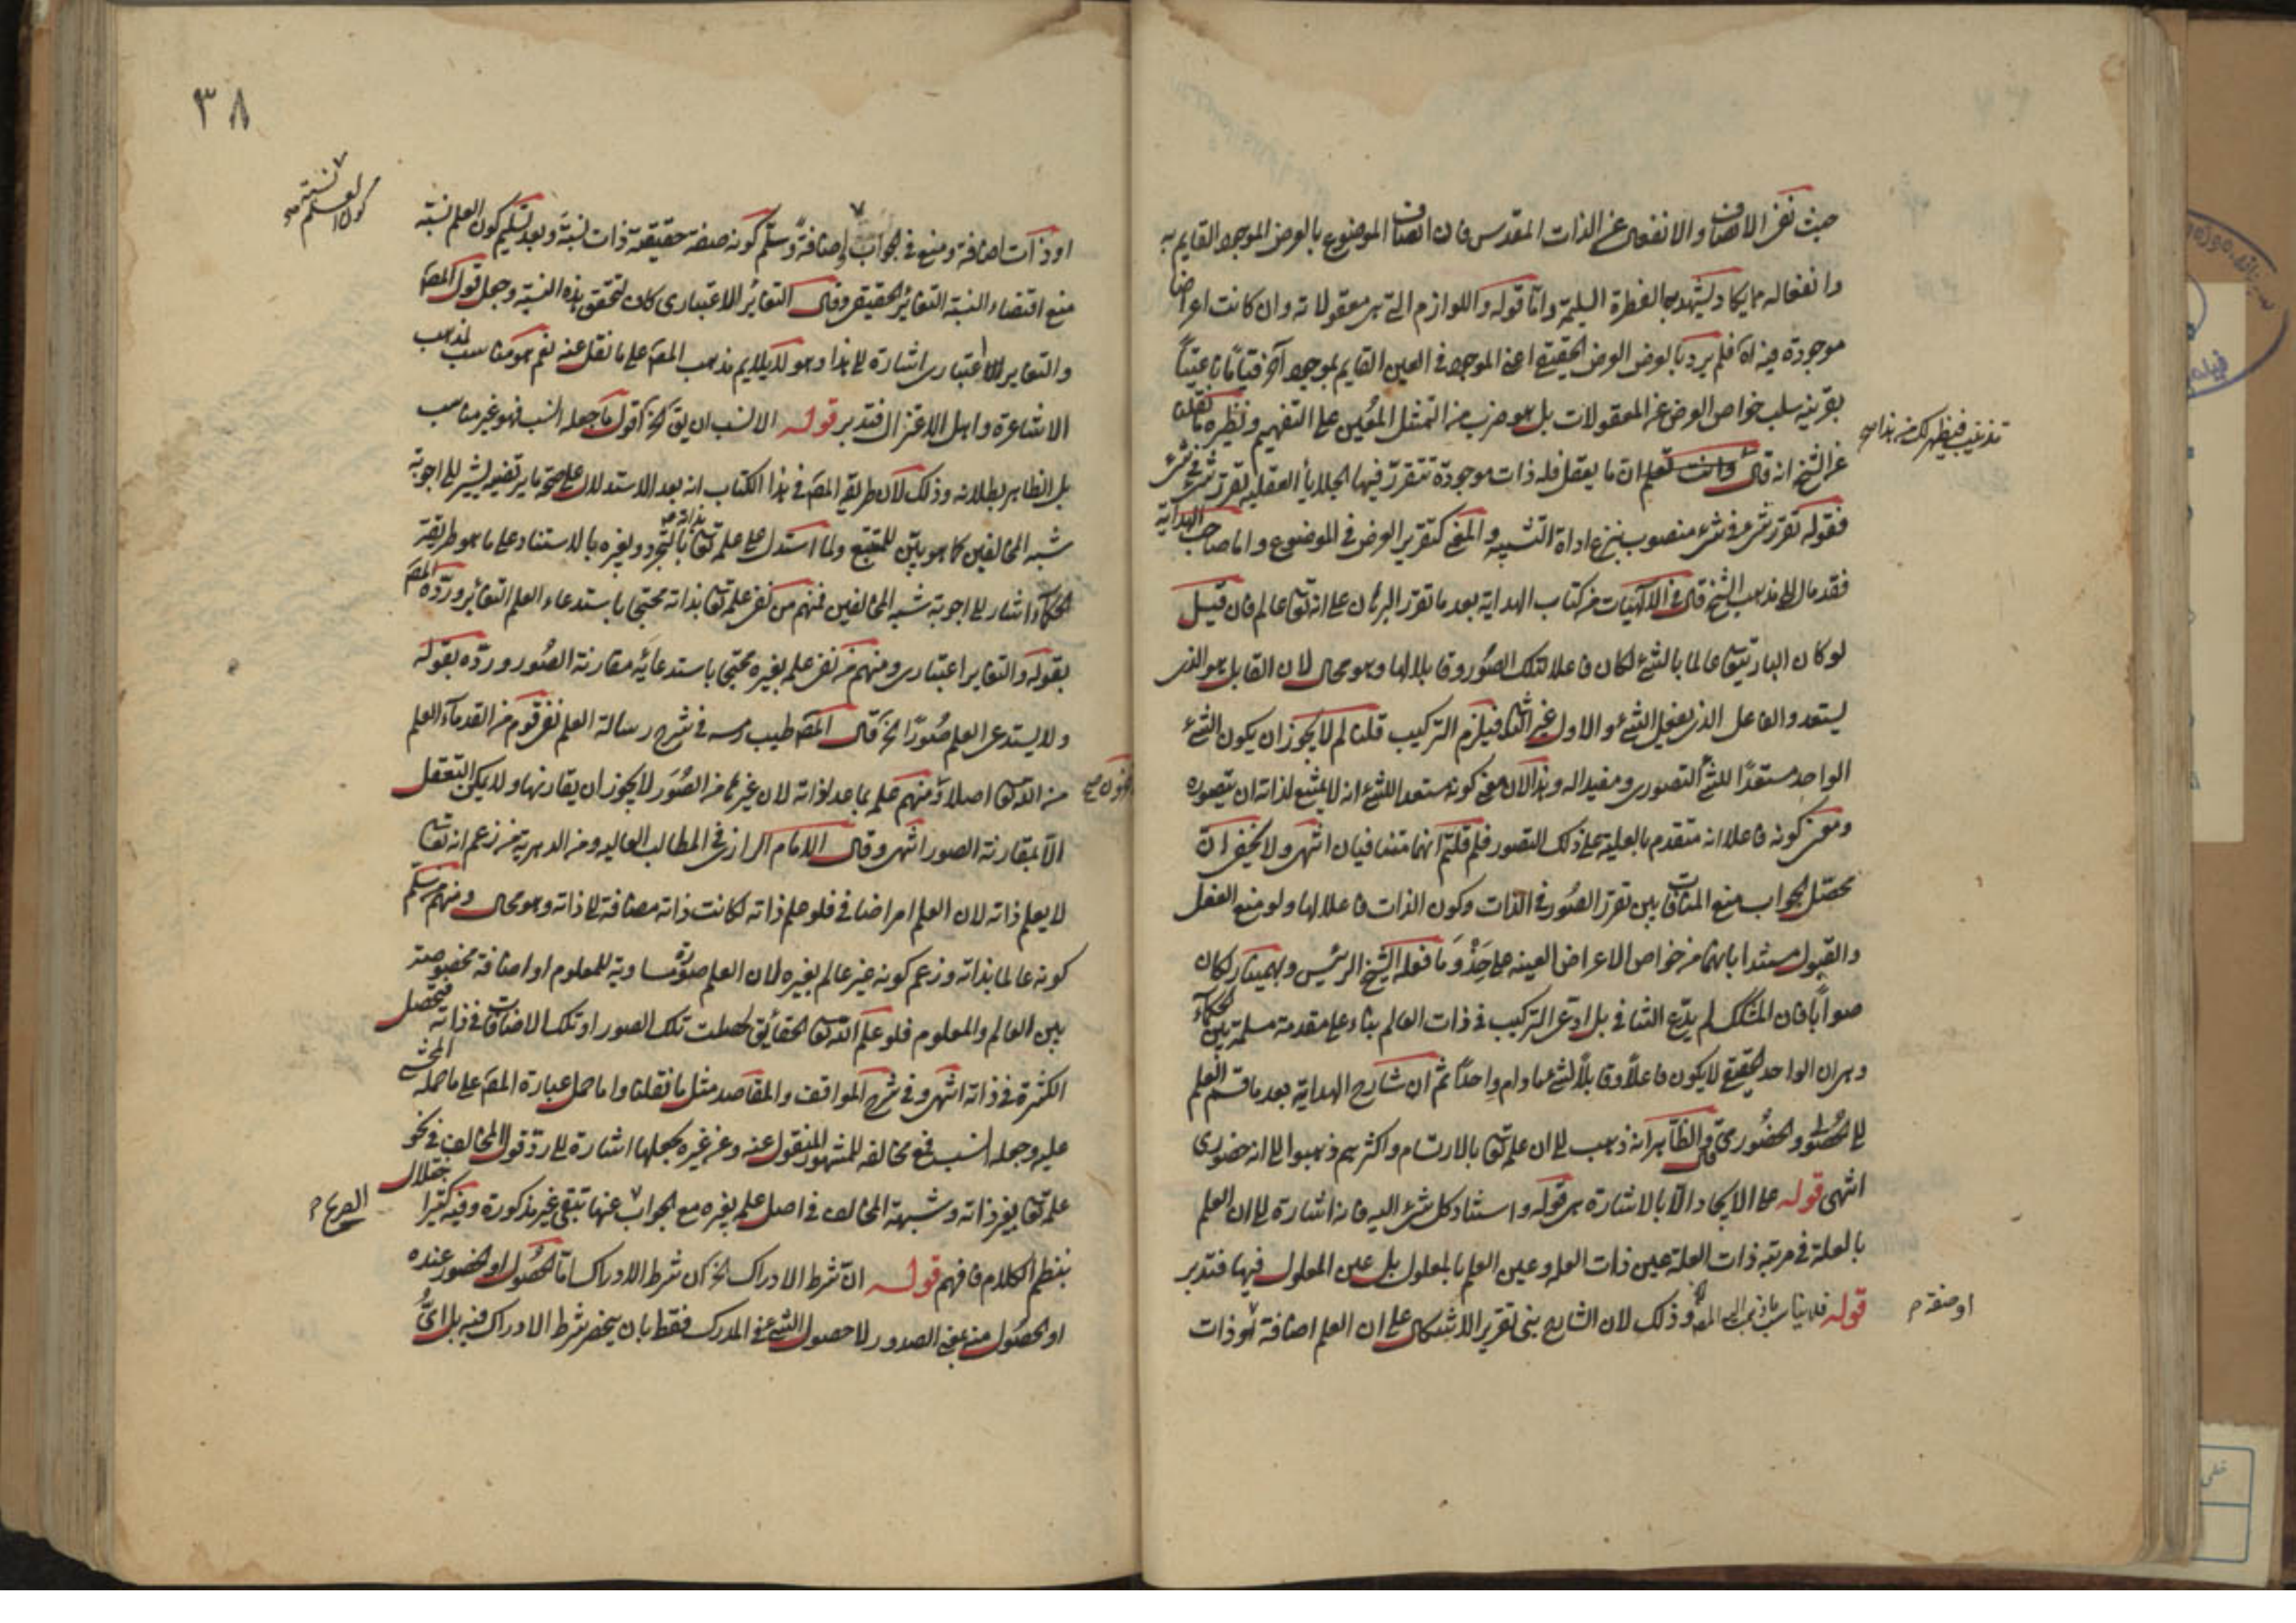 حيث نفى الاتصاف والانفعال عن الذات المقدس فان اتصاف الموضوع بالعرض الموجود القايم به
وانفعاله مما يكاد يشهد بها الفطرة السليمة واما قوله واللوازم التى هى معقولاته وان كانت اعراضا
موجودة فيه اه فلم يرد بالعرض العرض الحقيقى اعنى الموجود فى العين القايم بموجود آخر قياما ناعتيا
بقرينة سلب خواص العرض عن المعقولات بل هو ضرب من التمثل المعين على التفهيم ونظيره ما نقلنا
عن الشيخ انه قال وانت تعلم ان ما يعقل فله ذات موجودة تتقرر فيها الجلايا العقلية تقرر شئ فى شئ
تذنيب فيظهر لك من هذا صح
فقوله تقرر شئ فى شئ منصوب بنزع اداة التشبيه والمعنى كتقرير العرض فى الموضوع واما صاحب الهداية
فقد مال الى مذهب الشيخ قال فى الالهيات من كتاب الهداية بعد ما تقرر البرهان على انه تعالى عالم فان قيل
لو كان البارى تعالى عالما بالشئ لكان فاعلا لتلك الصور وقابلا لها وهو محال لان القابل هو الذى
يستعد والفاعل الذى يفعل الشئ والاول غير الثانى فيلزم التركيب قلنا لم لا يجوز ان يكون الشئ
الواحد مستعدا للشئ التصورى ومفيدا له وهذا لان معنى كونه مستعدا للشئ انه لا يمتنع لذاته ان يتصوره
ومعنى كونه فاعلا انه متقدم بالعلية على ذلك التصور فلم قلتم انهما متنافيان انتهى ولا يخفى ان
محصل الجواب منع المنافات بين تقرر الصور فى الذات وكون الذات فاعلا لها ولو منع الفعل
والقبول مستندا بانهما من خواص الاعراض العينية على حذو ما فعله الشيخ الرئيس وبهمنيار لكان
صوابا فان المشكك لم يدع التنافى بل ادعى التركيب فى ذات العالم بناء على مقدمة مسلمة بين الحكماء
وهى ان الواحد الحقيقى لا يكون فاعلا وقابلا لشئ ما دام واحدا ثم ان شارح الهداية بعد ما قسم العلم
الى الحصولى والحضورى قال والظاهر انه ذهب الى ان علمه تعالى بالارتسام واكثرهم ذهبوا الى انه حضورى
انتهى قوله على الايجاد الا بالاشارة هى قوله واستناد كل شئ اليه فانه اشارة الى ان العلم
بالعلة فى مرتبة ذات العلة عين ذات العلة وعين العلم بالمعلول بل عين المعلول فيها فتدبر
قوله فلا يناسب ما ذهب اليه المص وذلك لان الشارح بنى تقرير الاشكال على ان العلم اضافة او ذات
او صفة م
٣٨
او ذات اضافة ومنع فى الجواب اضافة وسلم كونه صفة حقيقية ذات نسبة وبعد تسليم كون العلم نسبة
كون العلم نسبة صح
منع اقتضاء النسبة التغاير الحقيقى وقال التغاير الاعتبارى كاف لتحقق هذه النسبة وجعل قول المص
والتغاير الاعتبارى اشارة الى هذا وهو لا يلايم مذهب المص على ما نقل عنه نعم هو مناسب لمذهب
الاشاعرة واهل الاعتزال فتدبر قوله الانسب ان يق الخ اقول ما جعله انسب فهو غير مناسب
بل الظاهر بطلانه وذلك لان طريقة المص فى هذا الكتاب انه بعد الاستدلال على صحة ما يرتضيه يشير الى اجوبة
شبه المخالفين كما هو بين للمتتبع ولما استدل على علمه تعالى بذاته بالتجرد وبغيره بالاستناد على ما هو طريقة
الحكماء اشار الى اجوبة شبه المخالفين فمنهم من نفى علمه تعالى بذاته محتجا باستدعاء العلم التغاير ورده المص
بقوله والتغاير اعتبارى ومنهم من نفى علمه بغيره محتجا باستدعائه مقارنة الصور ورده بقوله
ولا يستدعى العلم صورا الخ قال المص طيب رمسه فى شرح رسالة العلم نفى قوم من القدماء العلم
من الله تعالى اصلا ومنهم علمه بما عدا ذاته لان غيره من الصور لا يجوز ان يقارنها ولا يمكن التعقل
الا بمقارنة الصور انتهى وقال الامام الرازى فى المطالب العالية ومن الدهرية من زعم انه تعالى
لا يعلم ذاته لان العلم امر اضافى فلو علم ذاته لكانت ذاته مضافة الى ذاته وهو محال ومنهم من سلم
كونه عالما بذاته وزعم كونه غير عالم بغيره لان العلم صورة مساوية للمعلوم او اضافة مخصوصة
بين العالم والمعلوم فلو علم الله تعالى الحقايق لحصلت تلك الصور او تلك الاضافات فى ذاته فتحصل
الكثرة فى ذاته انتهى وفى شرح المواقف والمقاصد مثل ما نقلنا واما حمل عبارة المص على ما حمله المحشى
عليه وجعله انسب فمع مخالفه للمشهور المنقول عنه وعن غيره بجعلها اشارة الى رد قول المخالف فى نحو
علمه تعالى بغير ذاته وشبهة المخالف فى اصل علمه بغيره مع الجواب عنها تبقى غير مذكورة وفيه كثيرا
بنظم الكلام فافهم قوله ان شرط الادراك الخ ان شرط الادراك اما الحصول او الحضور عنده
او الحصول منه بمعنى الصدور لا حصول الشئ فى المدرك فقط بان ينحصر شرط الادراك فيه بل اى